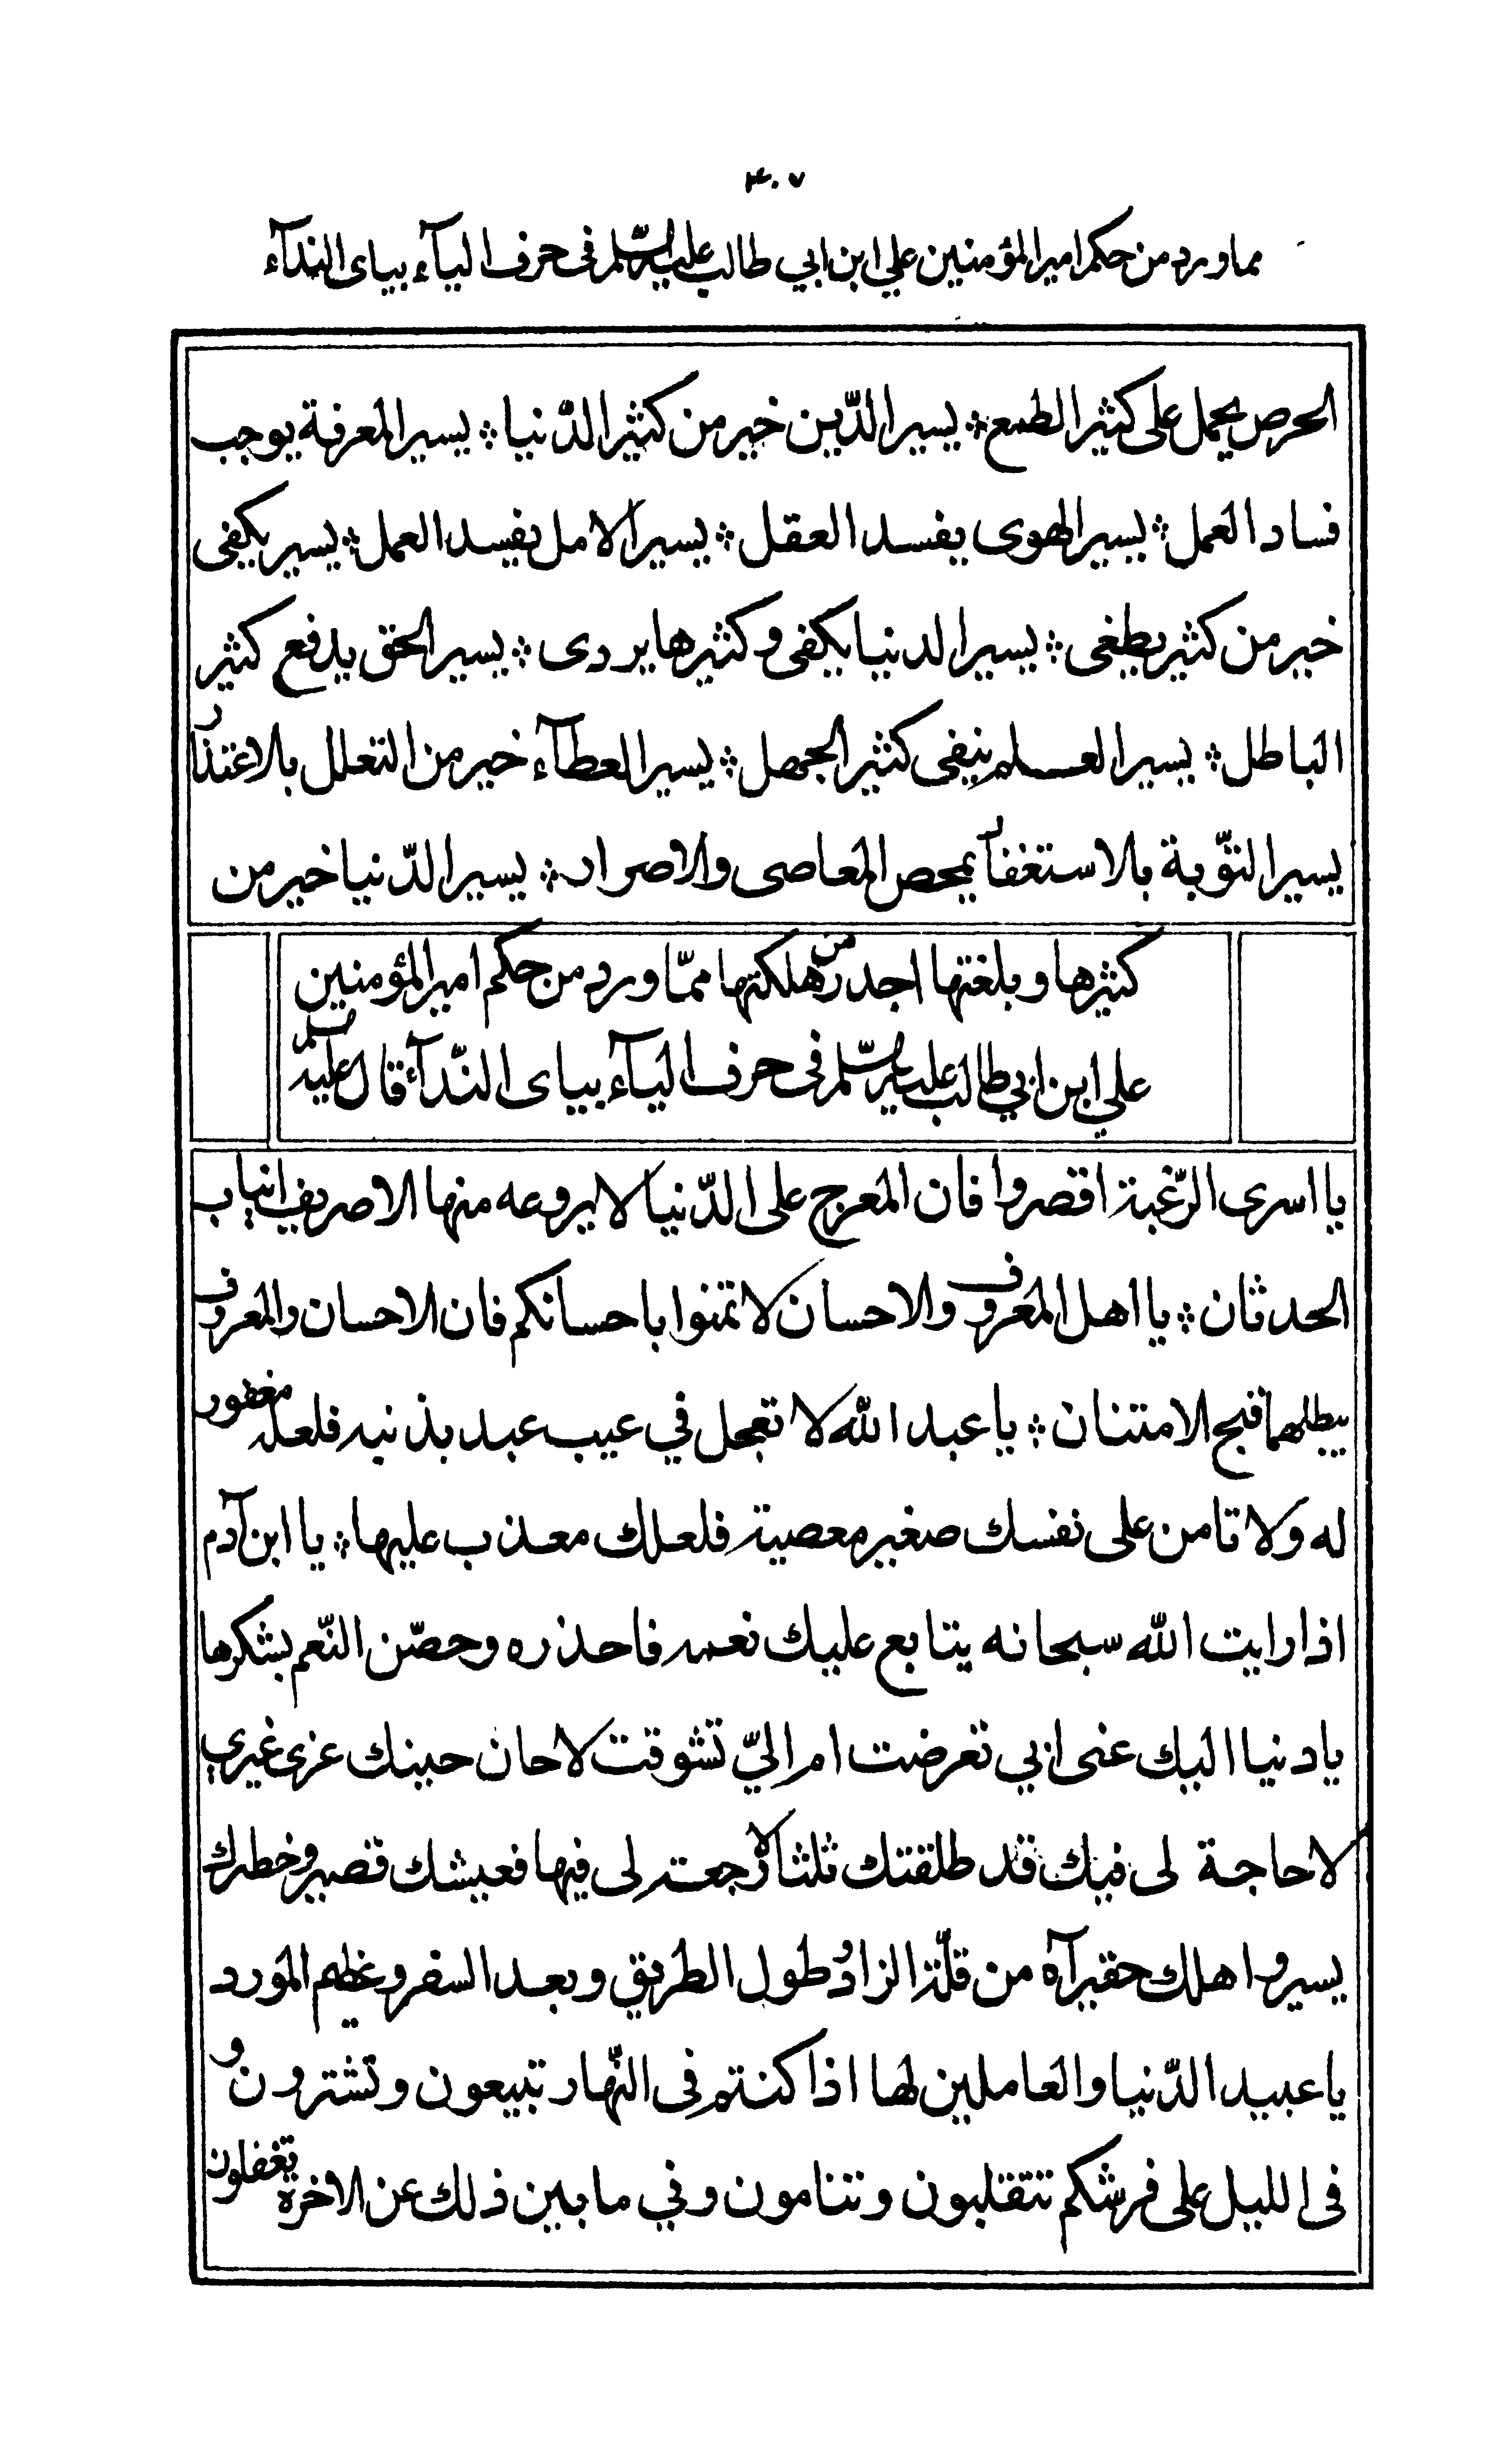 ۴۰۷
مما ورد من حكم امير المؤمنين علي ابن ابي طالب عليه السّلم فى حرف اليآء بياى الندآء
الحرص يحمل على كثير الطمع ؞ يسير الدّين خير من كثير الدّنيا ؞ يسير المعرفة يوجب
فساد العمل ؞ يسير الهوى يفسد العقل ؞ يسير الامل يفسد العمل ؞ يسير يكفى
خير من كثير يطغى ؞ يسير الدنيا يكفى وكثيرها يردى ؞ يسير الحق يدفع كثير
الباطل ؞ يسير العلم ينفى كثير الجهل ؞ يسير العطآء خير من التعلل بالاعتذار
يسير التّوبة بالاستغفار يمحص المعاصى والاصرار ؞ يسير الدّنيا خير من
كثيرها وبلغتها اجدر من هلكتها ممّا ورد من حكم امير المؤمنين
علي ابن ابي طالب عليه السّلم فى حرف اليآء بياى النّدآء قال عليه السلم
يا اسرى الرّغبة اقصروا فان المعرج على الدّنيا لا يروعه منها الا صريف انياب
الحدثان ؞ يا اهل المعروف والاحسان لا تمنوا باحسانكم فان الاحسان والمعروف
يبطلهما قبح الامتنان ؞ يا عبد الله لا تعجل في عيب عبد بذنبه فلعله مغفور
له ولا تامن على نفسك صغير معصية فلعلك معذب عليها ؞ يا ابن آدم
اذا رايت الله سبحانه يتابع عليك نعمه فاحذره وحصّن النّعم بشكرها
يا دنيا اليك عنى ابي تعرضت ام اليّ تشوقت لا حان حينك غرى غيري
لا حاجة لى فيك قد طلقتك ثلثا لا رجعة لى فيها فعيشك قصير وخطرك
يسير واهلك حقير آه من قلّة الزاد وطول الطريق وبعد السفر وعظيم المورد
يا عبيد الدّنيا والعاملين لها اذا كنتم فى النّهار تبيعون وتشترون و
فى الليل على فرشكم تتقلبون وتنامون وفي ما بين ذلك عن الاخرة تغفلون